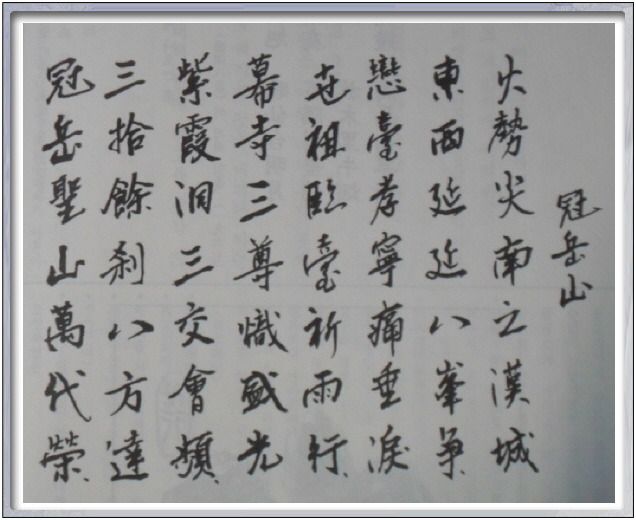 冠岳山
火勢尖南之漢城
東西延延八峯爭
戀臺孝寧痛垂淚
世祖臨臺祈雨行
幕寺三尊熾盛光
紫霞洞三交會頻
三拾餘刹八方達
冠岳聖山萬代榮